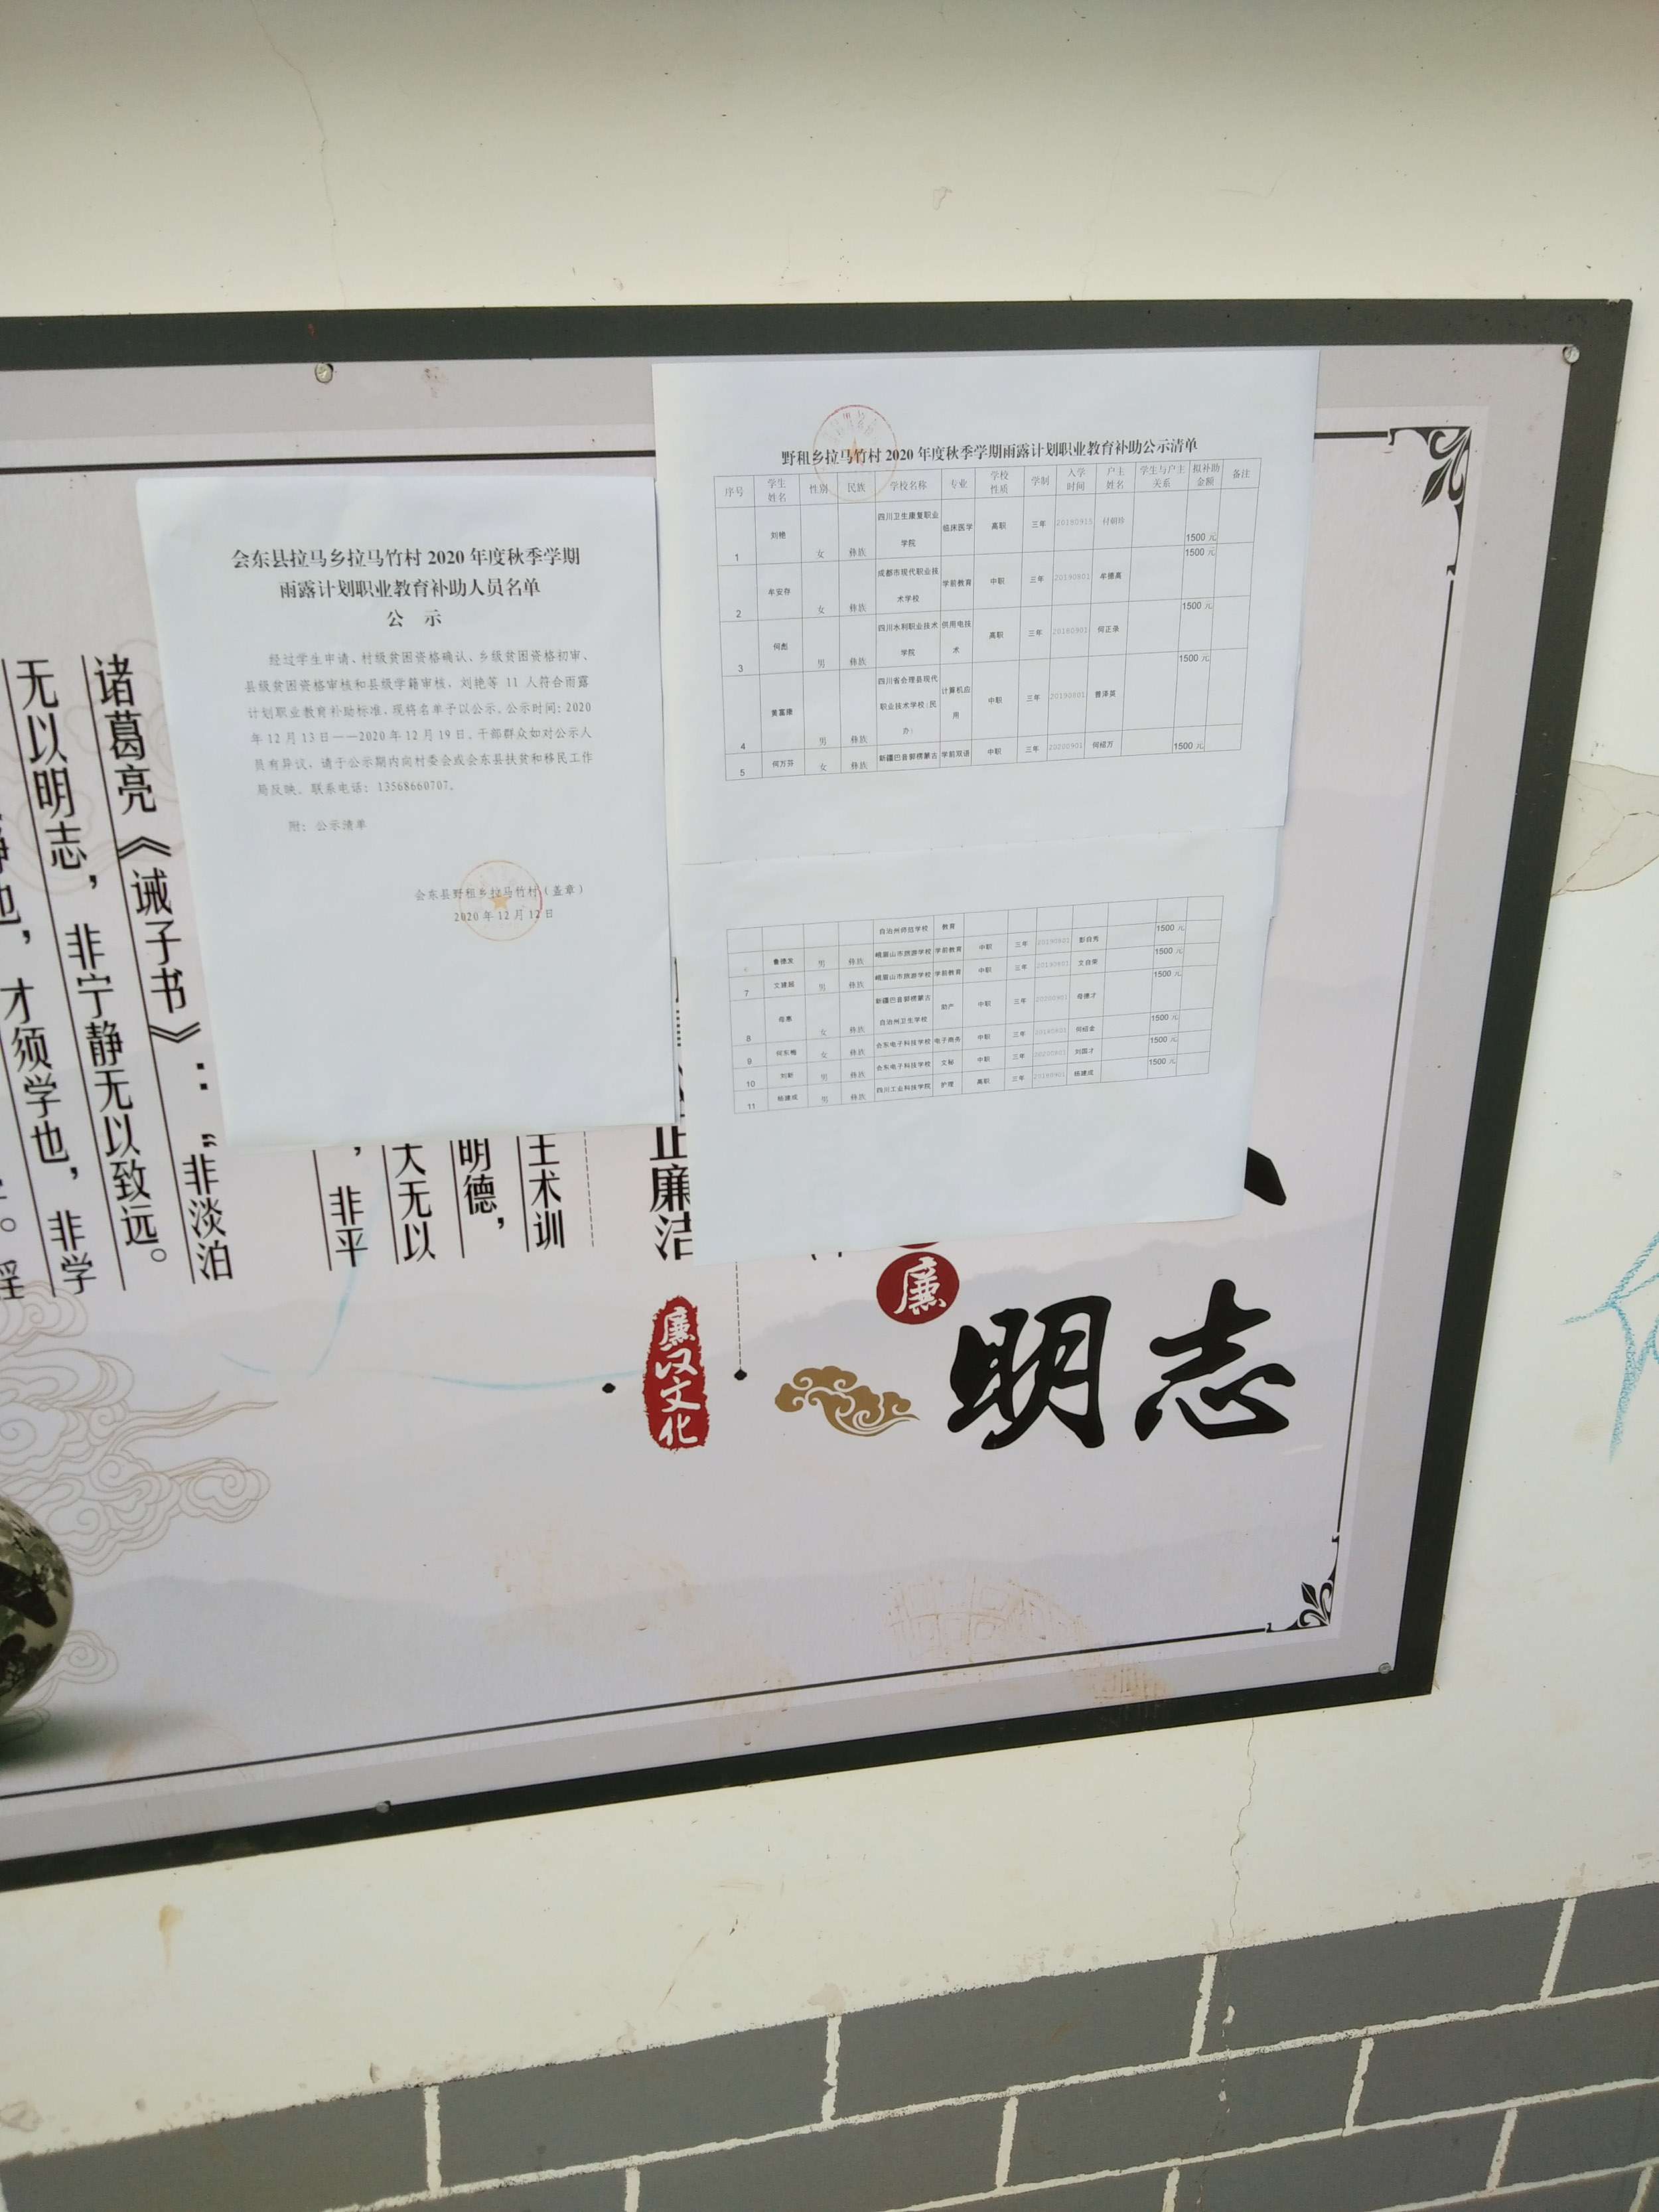 会东县拉马乡拉马竹村 2020 年度秋季学期
雨露计划职业教育补助人员名单
公 示
经过学生申请、村级贫困资格确认、乡级贫困资格初审、
县级贫困资格审核和县级学籍审核，刘艳等 11 人符合雨露
计划职业教育补助标准，现将名单予以公示。公示时间：2020
年 12 月 13 日——2020 年 12 月 19 日。干部群众如对公示人
员有异议，请于公示期内向村委会或会东县扶贫和移民工作
局反映。联系电话：13568660707。
附：公示清单
会东县野租乡拉马竹村（盖章）
2020 年 12 月 12 日
野租乡拉马竹村 2020 年度秋季学期雨露计划职业教育补助公示清单
序号 学生姓名 性别 民族 学校名称 专业 学校性质 学制 入学时间 户主姓名 学生与户主关系 拟补助金额 备注
1 刘艳 女 彝族 四川卫生康复职业学院 临床医学 高职 三年 20180915 付朝珍 1500 元
2 牟安存 女 彝族 成都市现代职业技术学校 学前教育 中职 三年 20190801 牟德高 1500 元
3 何彪 男 彝族 四川水利职业技术学院 供用电技术 高职 三年 20180901 何正录 1500 元
4 黄富康 男 彝族 四川省会理县现代职业技术学校（民办） 计算机应用 中职 三年 20190801 曹泽英 1500 元
5 何万芬 女 彝族 新疆巴音郭楞蒙古 学前双语 中职 三年 20200901 何绍万 1500 元
自治州师范学校 教育
6 鲁德发 男 彝族 峨眉山市旅游学校 学前教育 中职 三年 20190801 彭自秀 1500 元
7 文建超 男 彝族 峨眉山市旅游学校 学前教育 中职 三年 20190801 文自荣 1500 元
8 母惠 女 彝族 新疆巴音郭楞蒙古自治州卫生学校 助产 中职 三年 20200901 母德才 1500 元
9 何东梅 女 彝族 会东电子科技学校 电子商务 中职 三年 何绍金 1500 元
10 刘勒 男 彝族 会东电子科技学校 文秘 中职 三年 20200901 刘国才 1500 元
11 杨建成 男 彝族 四川工业科技学院 护理 高职 三年 20180901 杨建成 1500 元
诸葛亮《诫子书》：“非淡泊
无以明志，非宁静无以致远。
也，才须学也，非学
，非平
大无以
明德，
王术训
正廉洁
廉
廉汉文化
明志